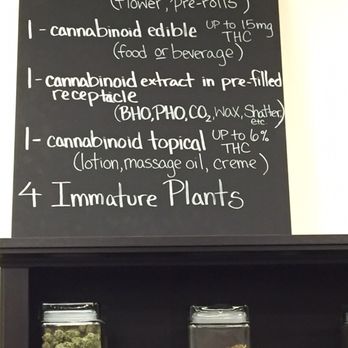 (flower, pre-rolls)
1 - cannabinoid edible UP to 15mg THC
(food or beverage)
1 - cannabinoid extract in pre-filled
receptacle
(BHO, PHO, CO2, wax, Shatter, etc.)
1 - cannabinoid topical UP to 6% THC
(lotion, massage oil, creme)
4 Immature Plants